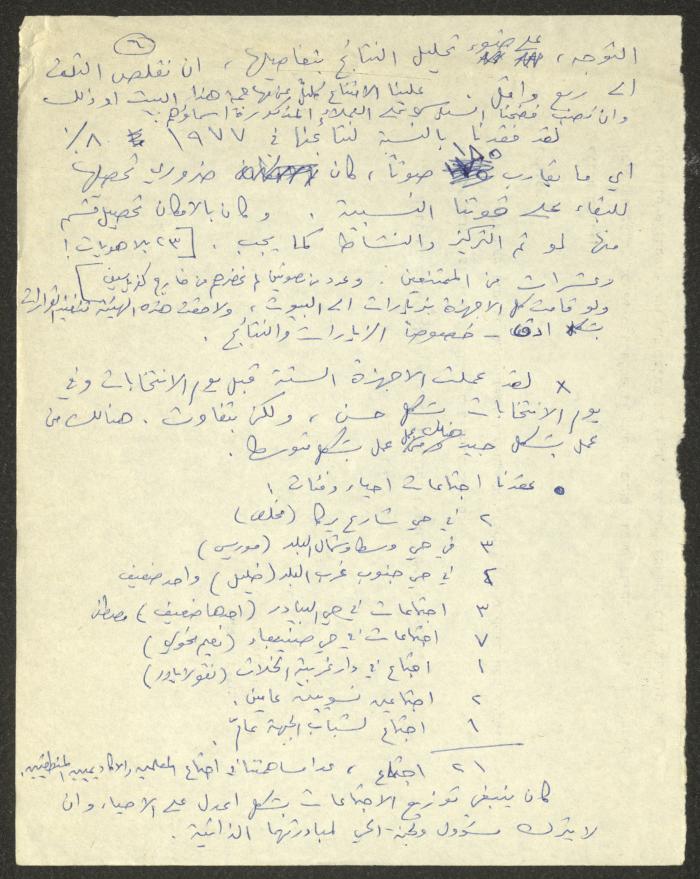 ٦
التوجه، على ضوء تحليل النتائج بتفاصيلها، ان نقلص التلف
الى ربع واقل. علينا الاقتناع كليًا من مهاجمة هذا البيت او ذلك
وان نصب غضبنا على العملاء المذكورة اسماؤهم.
لقد فقدنا بالنسبة لنتائجنا في ١٩٧٧ ٨٪
اي ما يقارب ١٨٥ صوتًا، كان ضروري تحصلها
للبقاء على قوتنا النسبية. وكان بالامكان تحصيل قسم
منها لو تم التركيز والنشاط كما يجب. [٢٣ بلا هويات!
وعشرات من الممتنعين. وعدد من صوتين لم نحضرهم من خارج كفرياسيف]
ولو قامت كل الاجهزة بزيارات الى البيوت، ولاحقت هذه الهيئة تنفيذ القرارات
بشكل ادق - خصوصًا الزيارات والنتائج.
x لقد عملت الاجهزة الستة قبل يوم الانتخابات وفي
يوم الانتخابات بشكل حسن، ولكن بتفاوت. هنالك من
عمل بشكل جيد وهنالك من عمل بشكل متوسط.
• عقدنا اجتماعات احياء وفئات:
٢ في حي شارع يركا (مخلص)
٣ في حي وسط وشمال البلد (موريس)
٢ في حي جنوب غرب البلد (خليل) واحد ضعيف
٣ اجتماعات في حي البيادر (احدها ضعيف)
٧ اجتماعات في حي (نعيم مخولي)
١ اجتماع في دار (نقولا)
٢ اجتماعين نسويين عامين.
١ اجتماع لشباب الجبهة عامّ.
٢١ اجتماع، عدا مساهمتنا في اجتماع المعلمين والاكاديميين المنطقيين.
كان ينبغي توزيع الاجتماعات بشكل اعدل على الاحياء وان
لا يترك مسؤول ولجنة الحي لمبادرتها الذاتية.